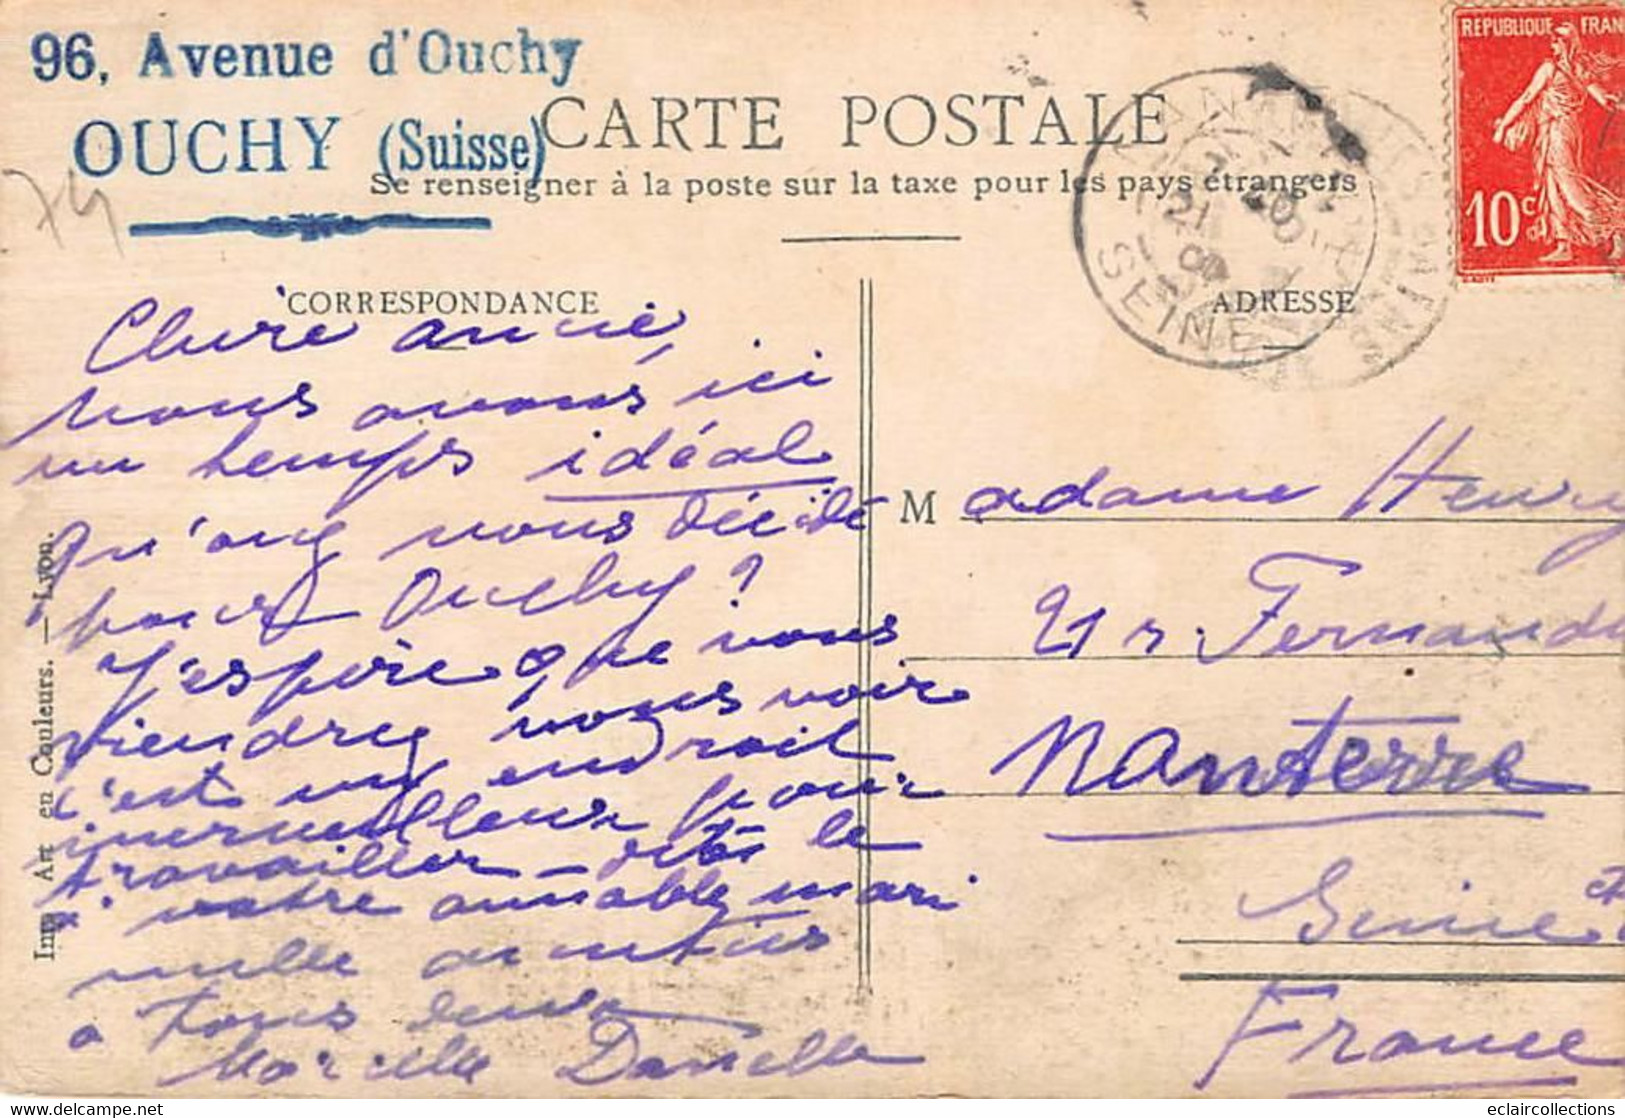 96, Avenue d'Ouchy
OUCHY (Suisse)
CARTE POSTALE
Se renseigner à la poste sur la taxe pour les pays étrangers
74
REPUBLIQUE FRAN
10 c
NANTERRE
21
SEINE
CORRESPONDANCE
ADRESSE
Chère amie,
nous avons ici
un temps idéal
qu'avez vous décidé
pour Ouchy ?
J'espère que vous
viendrez nous voir
c'est un endroit
merveilleux pour
travailler - dites le
à votre aimable mari
mille amitiés
à tous deux
Marcelle Danielle
Madame Henry
21 r. Fernande
Nanterre
Seine et
France
Imp. Art en Couleurs. — Lyon.
eclaircollections